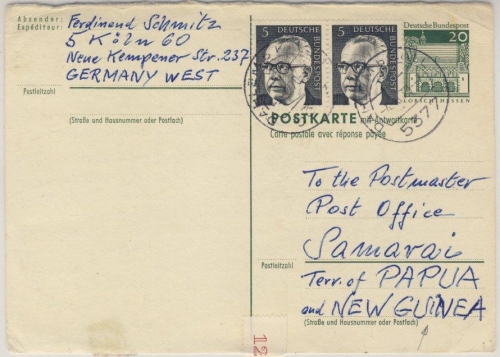 Absender:
Expéditeur:
Ferdinand Schmitz
5 Köln 60
Neue Kempener Str. 237
GERMANY WEST
Postleitzahl
(Straße und Hausnummer oder Postfach)
5
DEUTSCHE BUNDESPOST
5
DEUTSCHE BUNDESPOST
Deutsche Bundespost
20
LORSCH/HESSEN
5377
POSTKARTE mit Antwortkarte
Carte postale avec réponse payée
To the Postmaster
Post Office
Samarai
Terr. of PAPUA
and NEW GUINEA
Postleitzahl
(Straße und Hausnummer oder Postfach)
12